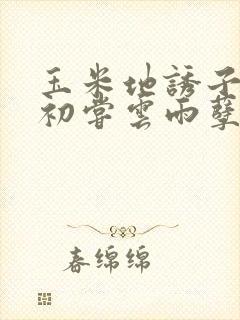 玉米地誘子
初嘗雲雨孽
春绵绵